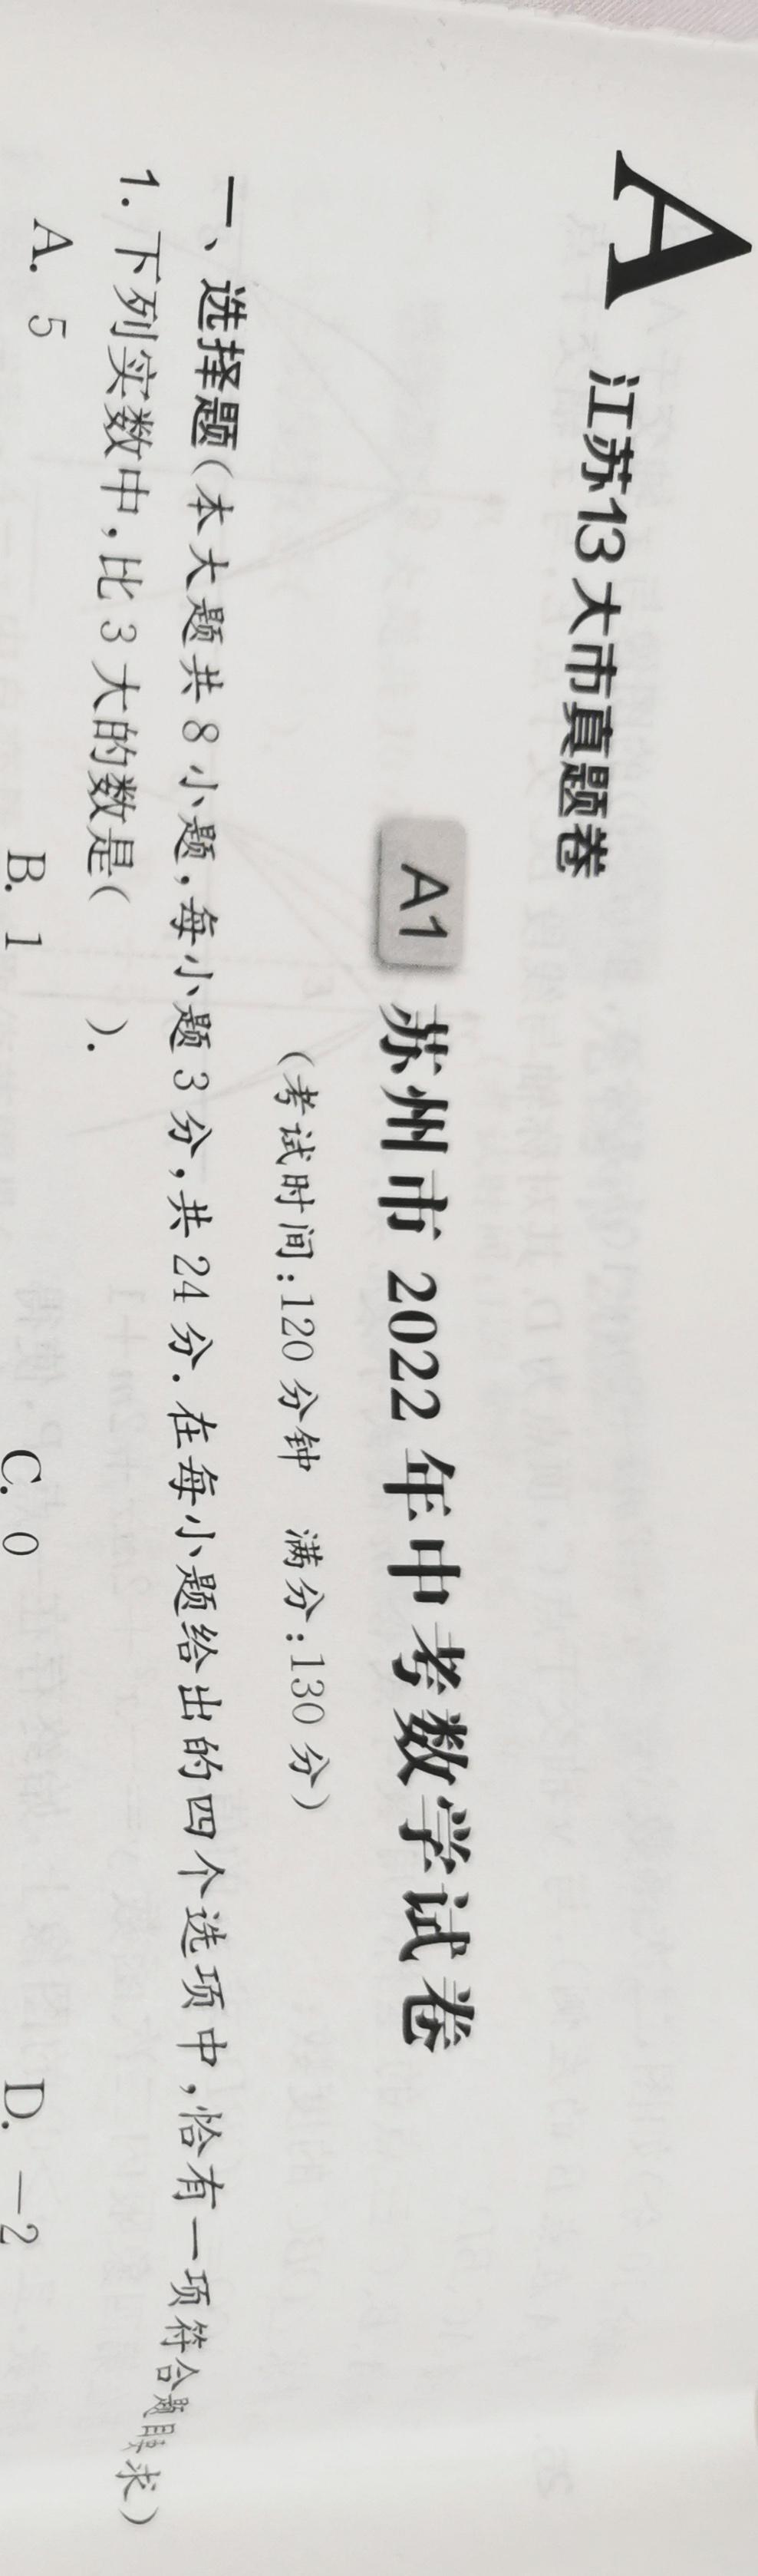 A 江苏13大市真题卷
A1 苏州市 2022 年中考数学试卷
(考试时间:120 分钟 满分:130 分)
一、选择题(本大题共 8 小题,每小题 3 分,共 24 分.在每小题给出的四个选项中,恰有一项符合题目要求)
1. 下列实数中,比 3 大的数是( ).
A. 5 B. 1 C. 0 D. －2